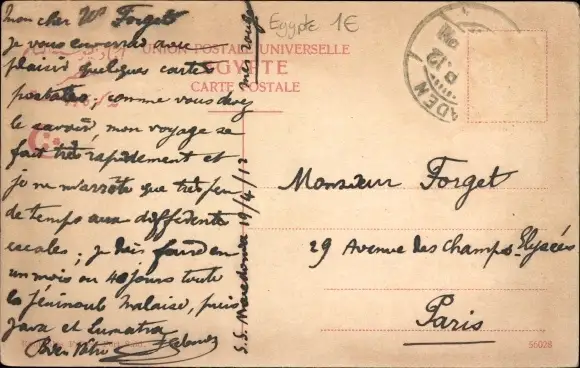 Mon cher Mr Forget
je vous enverrai avec
plaisir quelques cartes
postales; comme vous devez
le savoir, mon voyage se
fait très rapidement et
je ne m'arrête que très peu
de temps aux différentes
escales; je dois faire en
un mois ou 40 jours toute
la Péninsule Malaise, puis
Java et Sumatra
Bien Vôtre
S.S. Macedonia 19/4/12
mer rouge
Egypte 1€
UNION POSTALE UNIVERSELLE
EGYPTE
CARTE POSTALE
ADEN
12
Monsieur Forget
29 Avenue des Champs-Elysées
Paris
56028